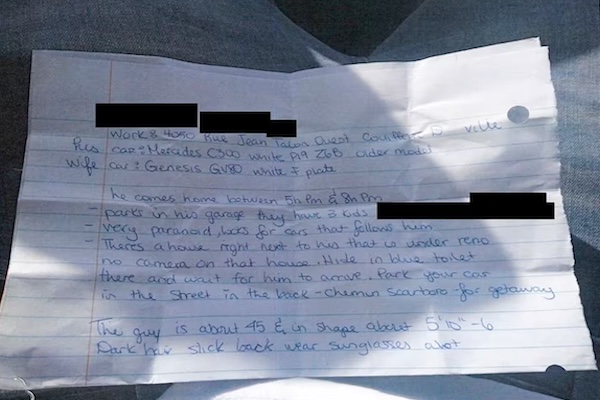 Work: 4050 Rue Jean Talon Ouest Couillard D ville
His car: Mercedes C300 white P19 ZGB older model
Wife car: Genesis GV80 white F plate
he comes home between 5h Pm & 8h Pm
- parks in his garage they have 3 kids
- very paranoid, looks for cars that follows him
- There's a house right next to his that is under reno
no camera on that house. Hide in blue toilet
there and wait for him to arrive. Park your car
in the street in the back - Chemin Scarboro for getaway
The guy is about 45 & in shape about 5'10" - 6
Dark hair slick back wear sunglasses alot